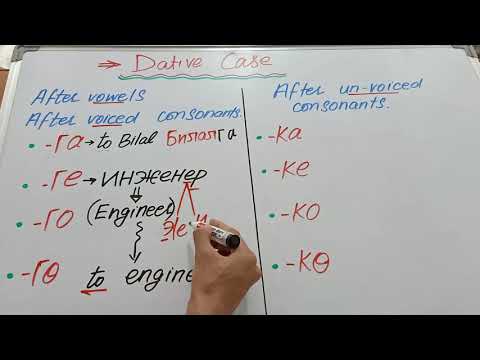 ⇒ Dative Case
After vowels
After voiced consonants.
• -га → to Bilal Билалга
• -ге → инженер
• -го (Engineer)
э/е и
• -гө to engine
After un-voiced
consonants.
• -ка
• -ке
• -ко
• -кө